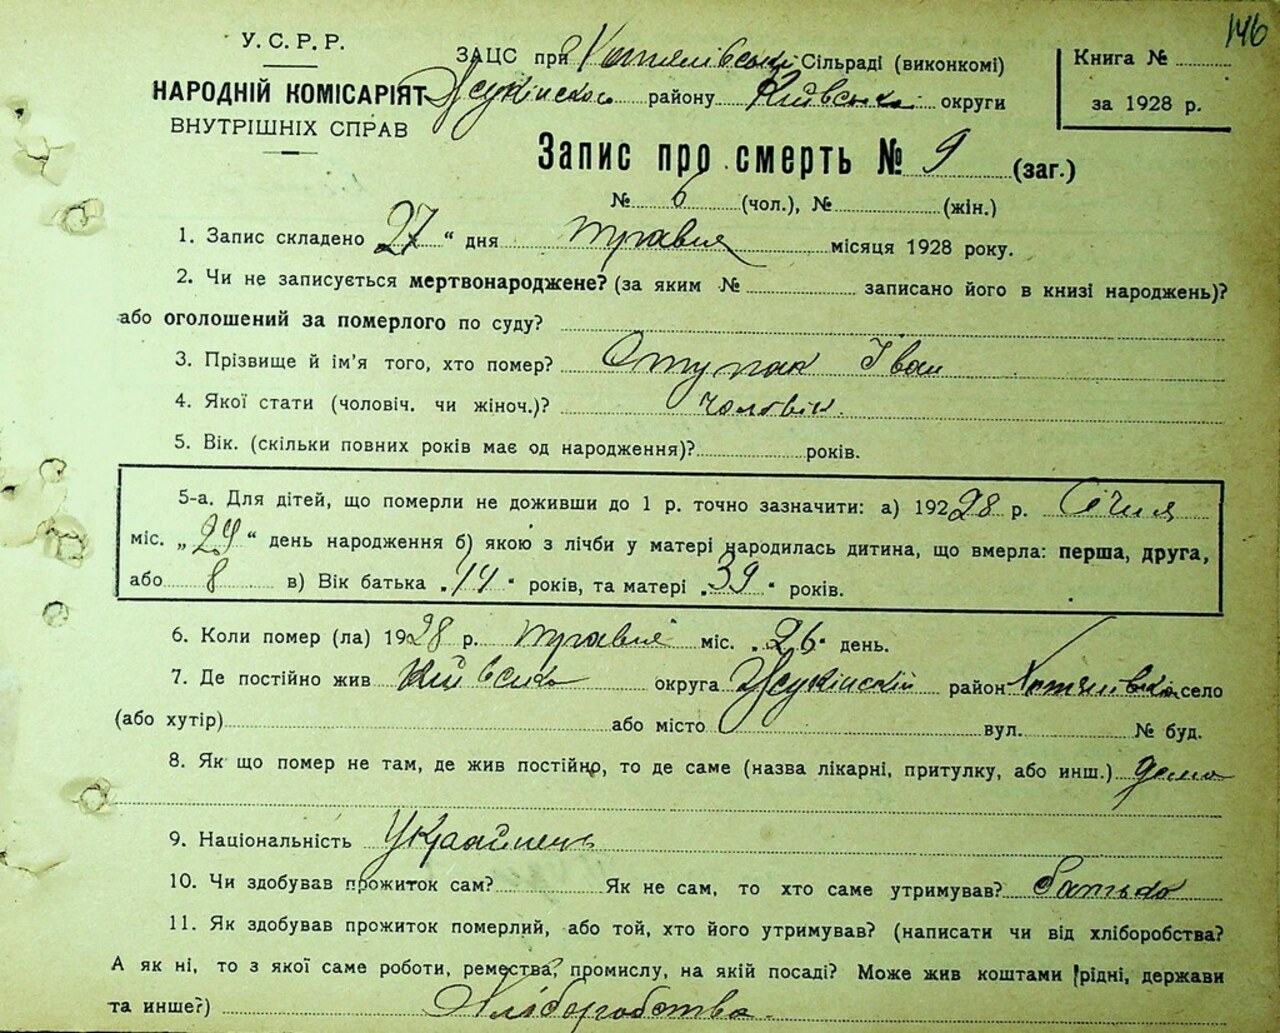 146
У. С. Р. Р.
НАРОДНІЙ КОМІСАРІЯТ
ВНУТРІШНІХ СПРАВ
ЗАЦС при Сільраді (виконкомі)
Жукінского району Київська округи
Книга №
за 1928 р.
Запис про смерть № 9 (заг.)
№ 6 (чол.), № (жін.)
1. Запис складено 27 " дня травня місяця 1928 року.
2. Чи не записується мертвонароджене? (за яким № записано його в книзі народжень)?
або оголошений за померлого по суду?
3. Прізвище й ім'я того, хто помер? Ступак Іван
4. Якої статі (чоловіч. чи жіноч.)? чоловік.
5. Вік. (скільки повних років має од народження)? років.
5-а. Для дітей, що померли не доживши до 1 р. точно зазначити: а) 19228 р. Січня
міс. „29" день народження б) якою з лічби у матері народилась дитина, що вмерла: перша, друга,
або 8 в) Вік батька „44" років, та матері „39" років.
6. Коли помер (ла) 1928 р. травня міс. „26" день.
7. Де постійно жив Київська округа Жукінский район село
(або хутір) або місто вул. № буд.
8. Як що помер не там, де жив постійно, то де саме (назва лікарні, притулку, або инш.) дома
9. Національність Українець
10. Чи здобував прожиток сам? Як не сам, то хто саме утримував? батько
11. Як здобував прожиток померлий, або той, хто його утримував? (написати чи від хліборобства?
А як ні, то з якої саме роботи, ремества, промислу, на якій посаді? Може жив коштами рідні, держави
та инше?) Хліборобство.